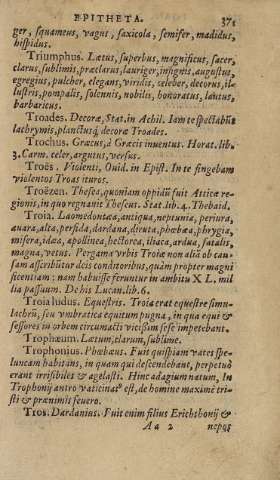 EPITHETA. 371
ger, squameus, vagus, saxicola, semifer, madidus,
hispidus.
Triumphus. Lætus, superbus, magnificus, sacer,
clarus, sublimis, præclarus, lauriger, insignis, augustus,
egregius, pulcher, elegans, virilis, celeber, decorus, il-
lustris, pompalis, solennis, nobilis, honoratus, lautus,
barbaricus.
Troades. Decoræ, Stat. in Achil. Iam te spectabūt
lachrymis, planctuq; decoræ Troades.
Trochus. Græcus, à Græcis inuentus. Horat. lib.
3. Carm. celer, argutus, versus.
Troës. Violenti, Ouid. in Epist. In te fingebam
violentos Troas ituros.
Troëzen. Thesea, quoniam oppidū fuit Atticæ re-
gionis, in quo regnauit Theseus. Stat. lib. 4. Thebaid.
Troia. Laomedontæa, antiqua, neptunia, periura,
auara, alta, perfida, dardana, diruta, phœbæa, phrygia,
misera, idæa, apollinea, hectorea, iliaca, ardua, fatalis,
magna, vetus. Pergama vrbis Troiæ non aliâ ob cau-
sam ascribūtur deis conditoribus, quàm propter magni
ficentiam: nam habuisse feruntur in ambitu XL. mil
lia passuum. De his Lucan. lib. 6.
Troia ludus. Equestris. Troia erat equestre simu-
lachrū, seu vmbratica equitum pugna, in qua equi &
sessores in orbem circumacti vicissim sese impetebant.
Trophæum. Lætum, clarum, sublime.
Trophonius. Phœbæus. Fuit quispiam vates spe-
luncam habitans, in quam qui descendebant, perpetuò
erant irrisibiles & agelasti. Hinc adagium natum, In
Trophonij antro vaticinatus est, de homine maximè tri-
sti & prænimis seuero.
Tros. Dardanius. Fuit enim filius Erichthonij &
Aa 2 nepos